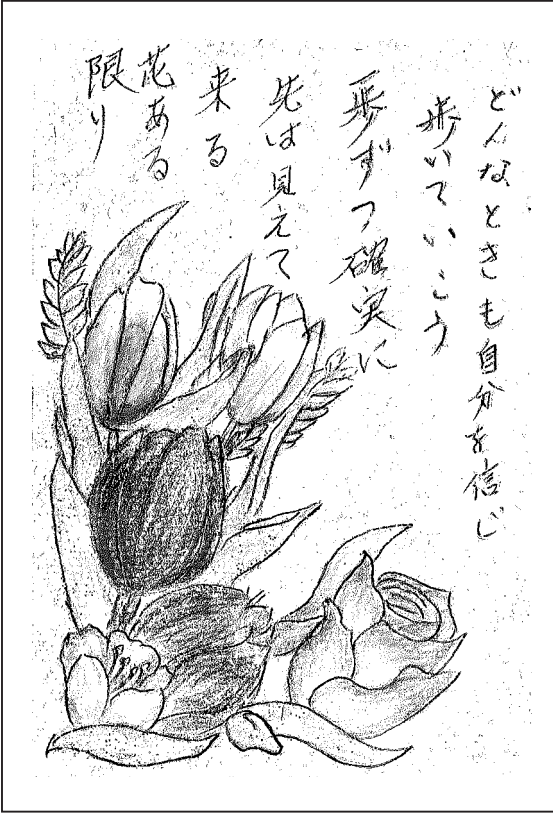 どんなときも自分を信じ
歩いていこう
一歩ずつ確実に
先は見えて
来る
花ある
限り